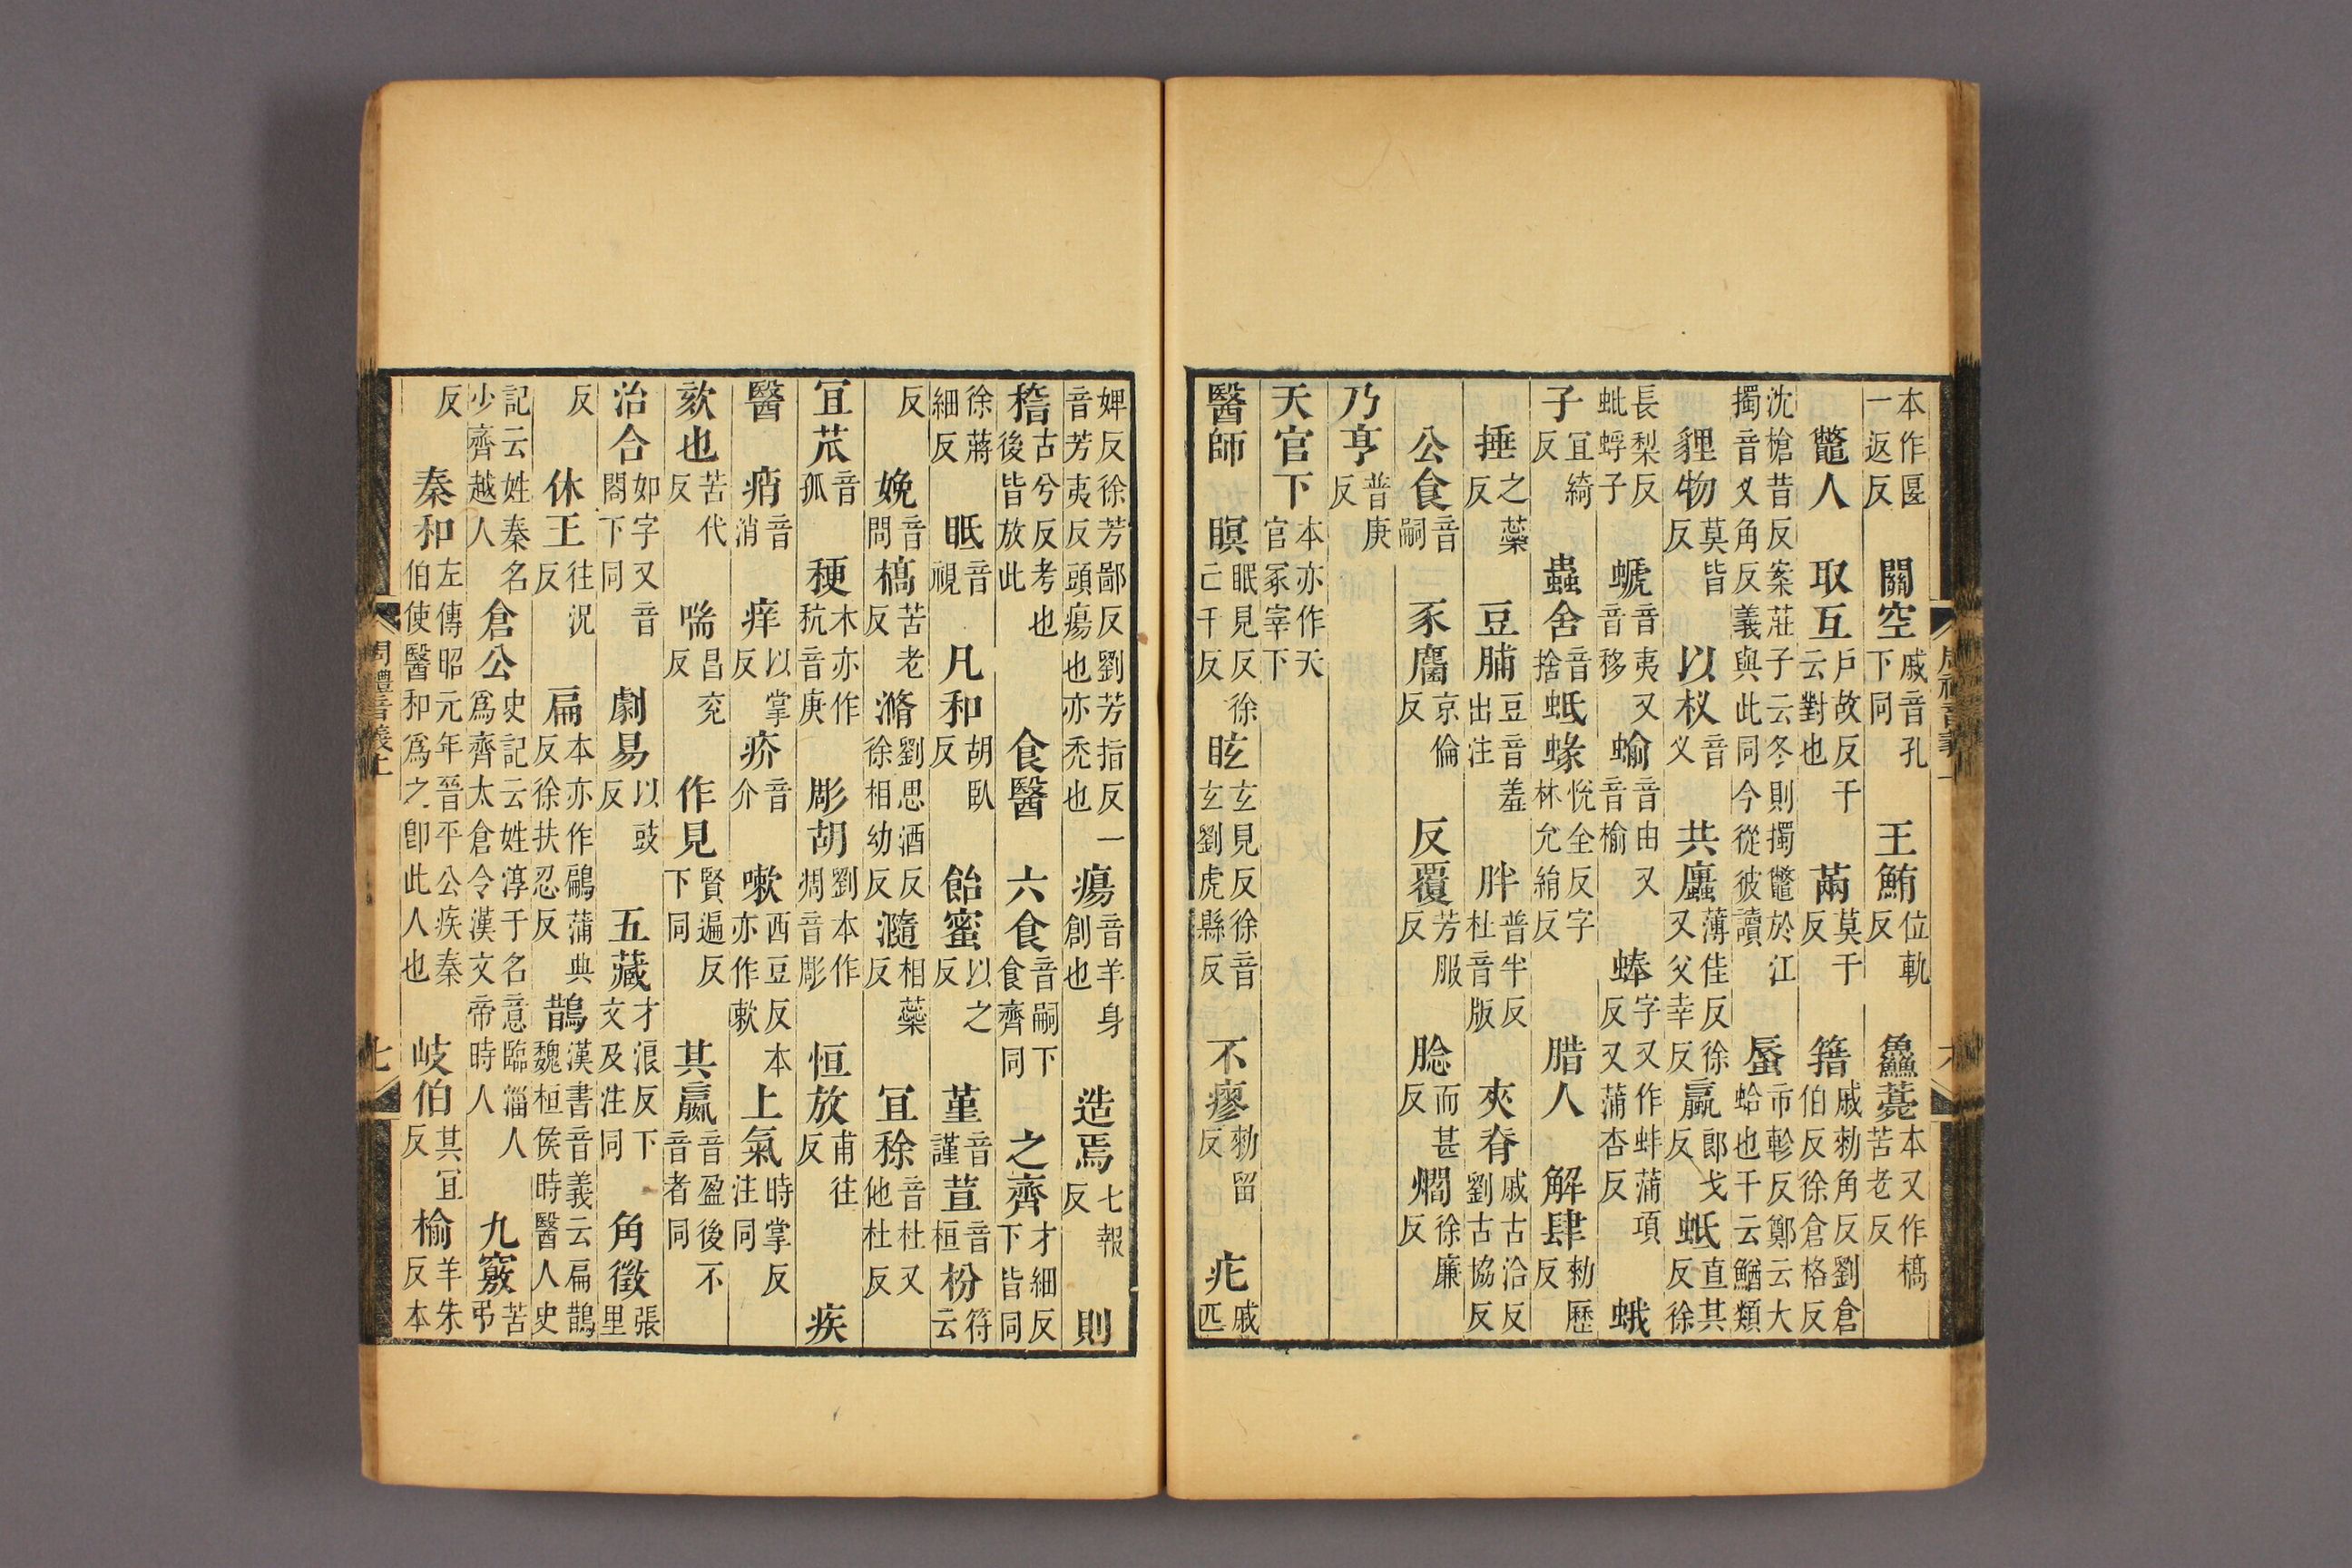 本作匽一返反　關空戚音孔下同　王鮪位軌反　鱻薧本又作槁苦老反
鼈人　取互戶故反干云對也　蔄莫干反　籍戚勑角反劉倉伯反徐倉格反
沈槍昔反案莊子云冬則擉鼈於江擉音义角反義與此同今從彼讀　蜃市軫反鄭云大蛤也干云鰌類
貍物莫皆反　以杈音义　共蠯薄佳反徐又父幸反　蠃郎戈反　蚳直其反徐
長梨反蚍蜉子　螔音夷又音移　蝓音由又音榆　蜯字又作蚌蒲項反又蒲杏反　蛾
子宜綺反　蟲舍音捨　蚳蝝悅全反字林允絹反　腊人　解肆勑歷反
捶之蘂反　豆脯豆音羞出注　胖普半反杜音版　夾脊戚古洽反劉古協反
公食音嗣　豕麕京倫反　反覆芳服反　脍而甚反　燗徐廉反
乃亨普庚反
天官下本亦作天官冢宰下
醫師　瞑眠見反徐亡千反　眩玄見反徐音玄劉虎縣反　不瘳勑留反　疕戚匹
周禮音義上　六
婢反徐芳鄙反劉芳指反一音芳夷反頭瘍也亦禿也　瘍音羊身創也　造焉七報反　則
稽古兮反考也後皆放此　食醫　六食音嗣下食齊同　之齊才細反下皆同
徐蔣細反　眂音視　凡和胡臥反　飴蜜以之反　堇音謹　荁音桓　枌符云
反　娩音問　槁苦老反　滫劉思酒反徐相幼反　瀡相蘂反　宜稌音杜又他杜反
宜苽音孤　稉木亦作秔音庚　彫胡劉本作凋音彫　恒放甫往反　疾
醫　痟音消　痒以掌反　疥音介　嗽西豆反本亦作欶　上氣時掌反注同
欬也苦代反　喘昌兖反　作見賢遍反下同　其贏音盈後不音者同
治合如字又音閤下同　劇易以豉反　五藏才浪反下文及注同　角徵張里
反　休王往況反　扁本亦作鶣蒲典反徐扶忍反　鵲漢書音義云扁鵲魏桓侯時醫人史
記云姓秦名少齊越人　倉公史記云姓淳于名意臨淄人爲齊太倉令漢文帝時人　九竅苦弔
反　秦和左傳昭元年晉平公疾秦伯使醫和爲之卽此人也　岐伯其宜反　榆羊朱反本
周禮音義上　七